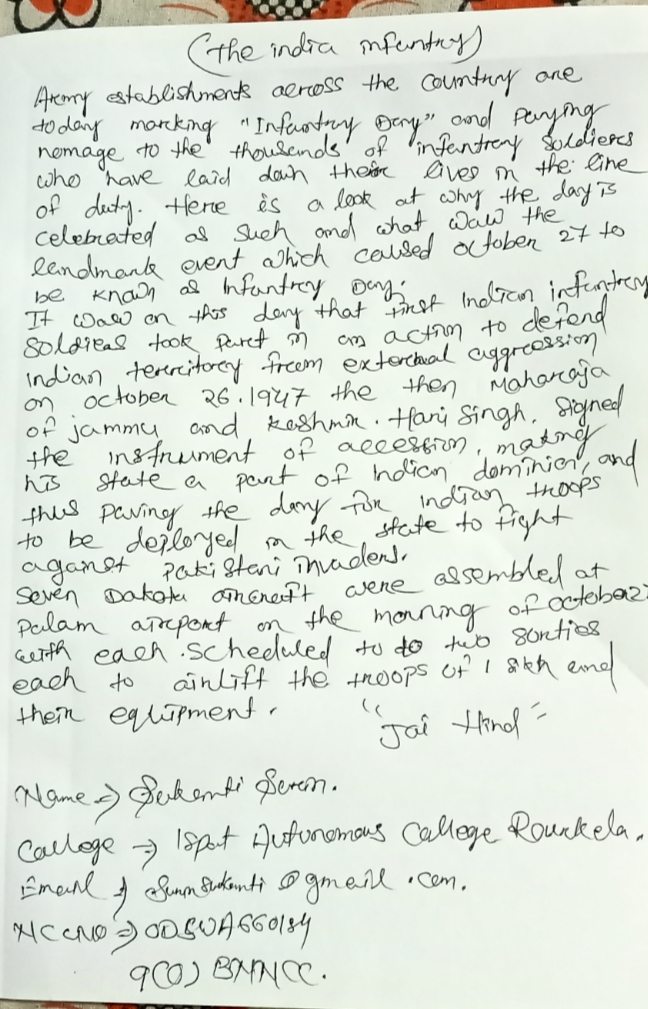 (The india infantry)
Army establishments across the country are
today marking "Infantry Day" and paying
homage to the thousands of infantry soldiers
who have laid down their lives in the line
of duty. Here is a look at why the day is
celebrated as such and what waw the
landmark event which caused october 27 to
be known as Infantry Day.
It waw on this day that first Indian infantry
soldiers took part in an action to defend
indian territorey from external aggression
on october 26.1947 the then Maharaja
of jammu and kashmir. Hari Singh, signed
the instrument of accession, making
his state a part of Indian dominion, and
thus paving the day for indian troops
to be deployed in the state to fight
against pakistani invaders.
Seven Dakota aircraft were assembled at
palam airport on the morning of october 27
with each scheduled to do two sorties
each to airlift the troops of 1 sikh and
their equipment.
"Jai Hind"
Name → Sukanti
College → Ispat Autonomous College Rourkela.
Email → @gmail.com.
NCC NO → ODSWA660184
9(O) BNNCC.